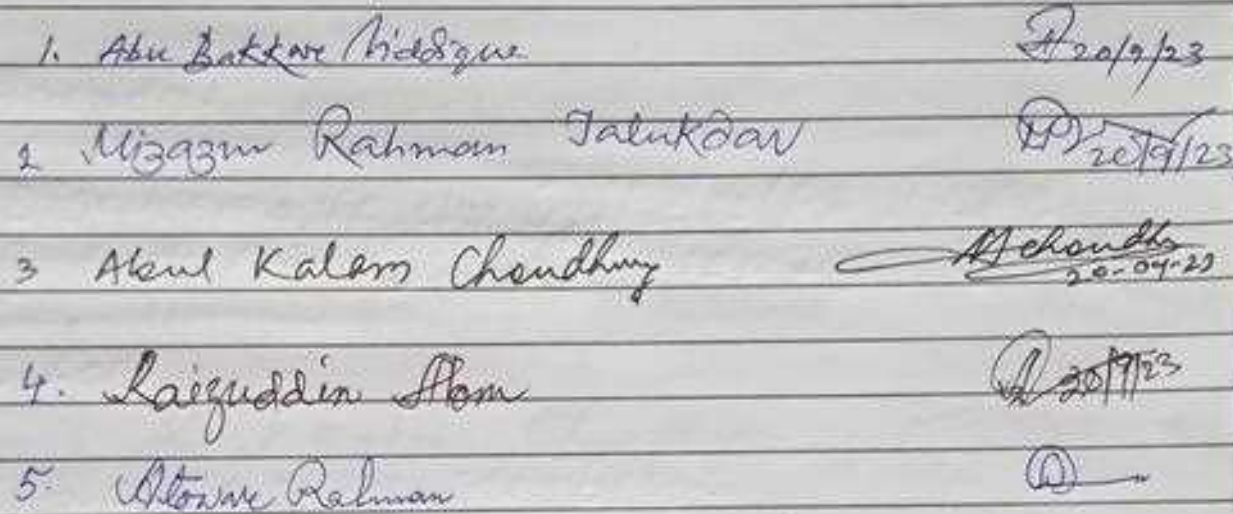 1. Abu Bakkar Siddique 20/9/23
2 Mizazur Rahman Talukdar 20/9/23
3 Abul Kalam Choudhury AKchoudhu 20-09-23
4. Raizuddin Alom 20/9/23
5. Atowar Rahman